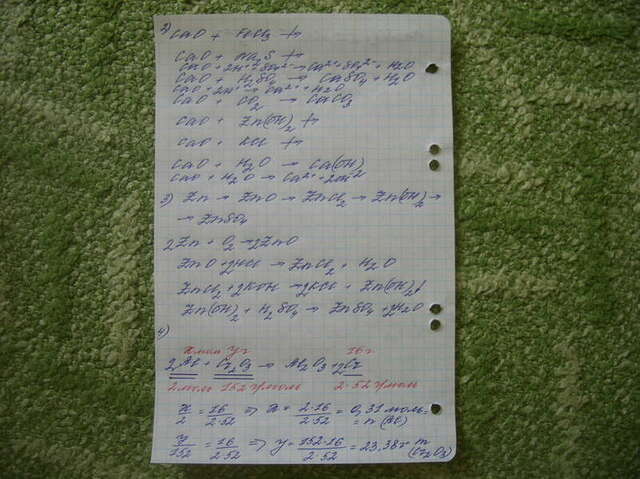 2) CaO + FeCl3 ↛
CaO + Na2S ↛
CaO + 2H+ + SO4^2- → Ca^2+ + SO4^2- + H2O
CaO + H2SO4 → CaSO4 + H2O
CaO + 2H+ → Ca^2+ + H2O
CaO + CO2 → CaCO3
CaO + Zn(OH)2 ↛
CaO + KCl ↛
CaO + H2O → Ca(OH)2
CaO + H2O → Ca^2+ + 2OH-
3) Zn → ZnO → ZnCl2 → Zn(OH)2 →
→ ZnSO4
2Zn + O2 → 2ZnO
ZnO + 2HCl → ZnCl2 + H2O
ZnCl2 + 2KOH → 2KCl + Zn(OH)2↓
Zn(OH)2 + H2SO4 → ZnSO4 + 2H2O
4)
x моль y г 16 г
2Al + Cr2O3 → Al2O3 + 2Cr
2 моль 152 г/моль 2·52 г/моль
x/2 = 16/2·52 => x = 2·16/2·52 = 0,31 моль =
= n (Al)
y/152 = 16/2·52 => y = 152·16/2·52 = 23,38 г m
(Cr2O3)